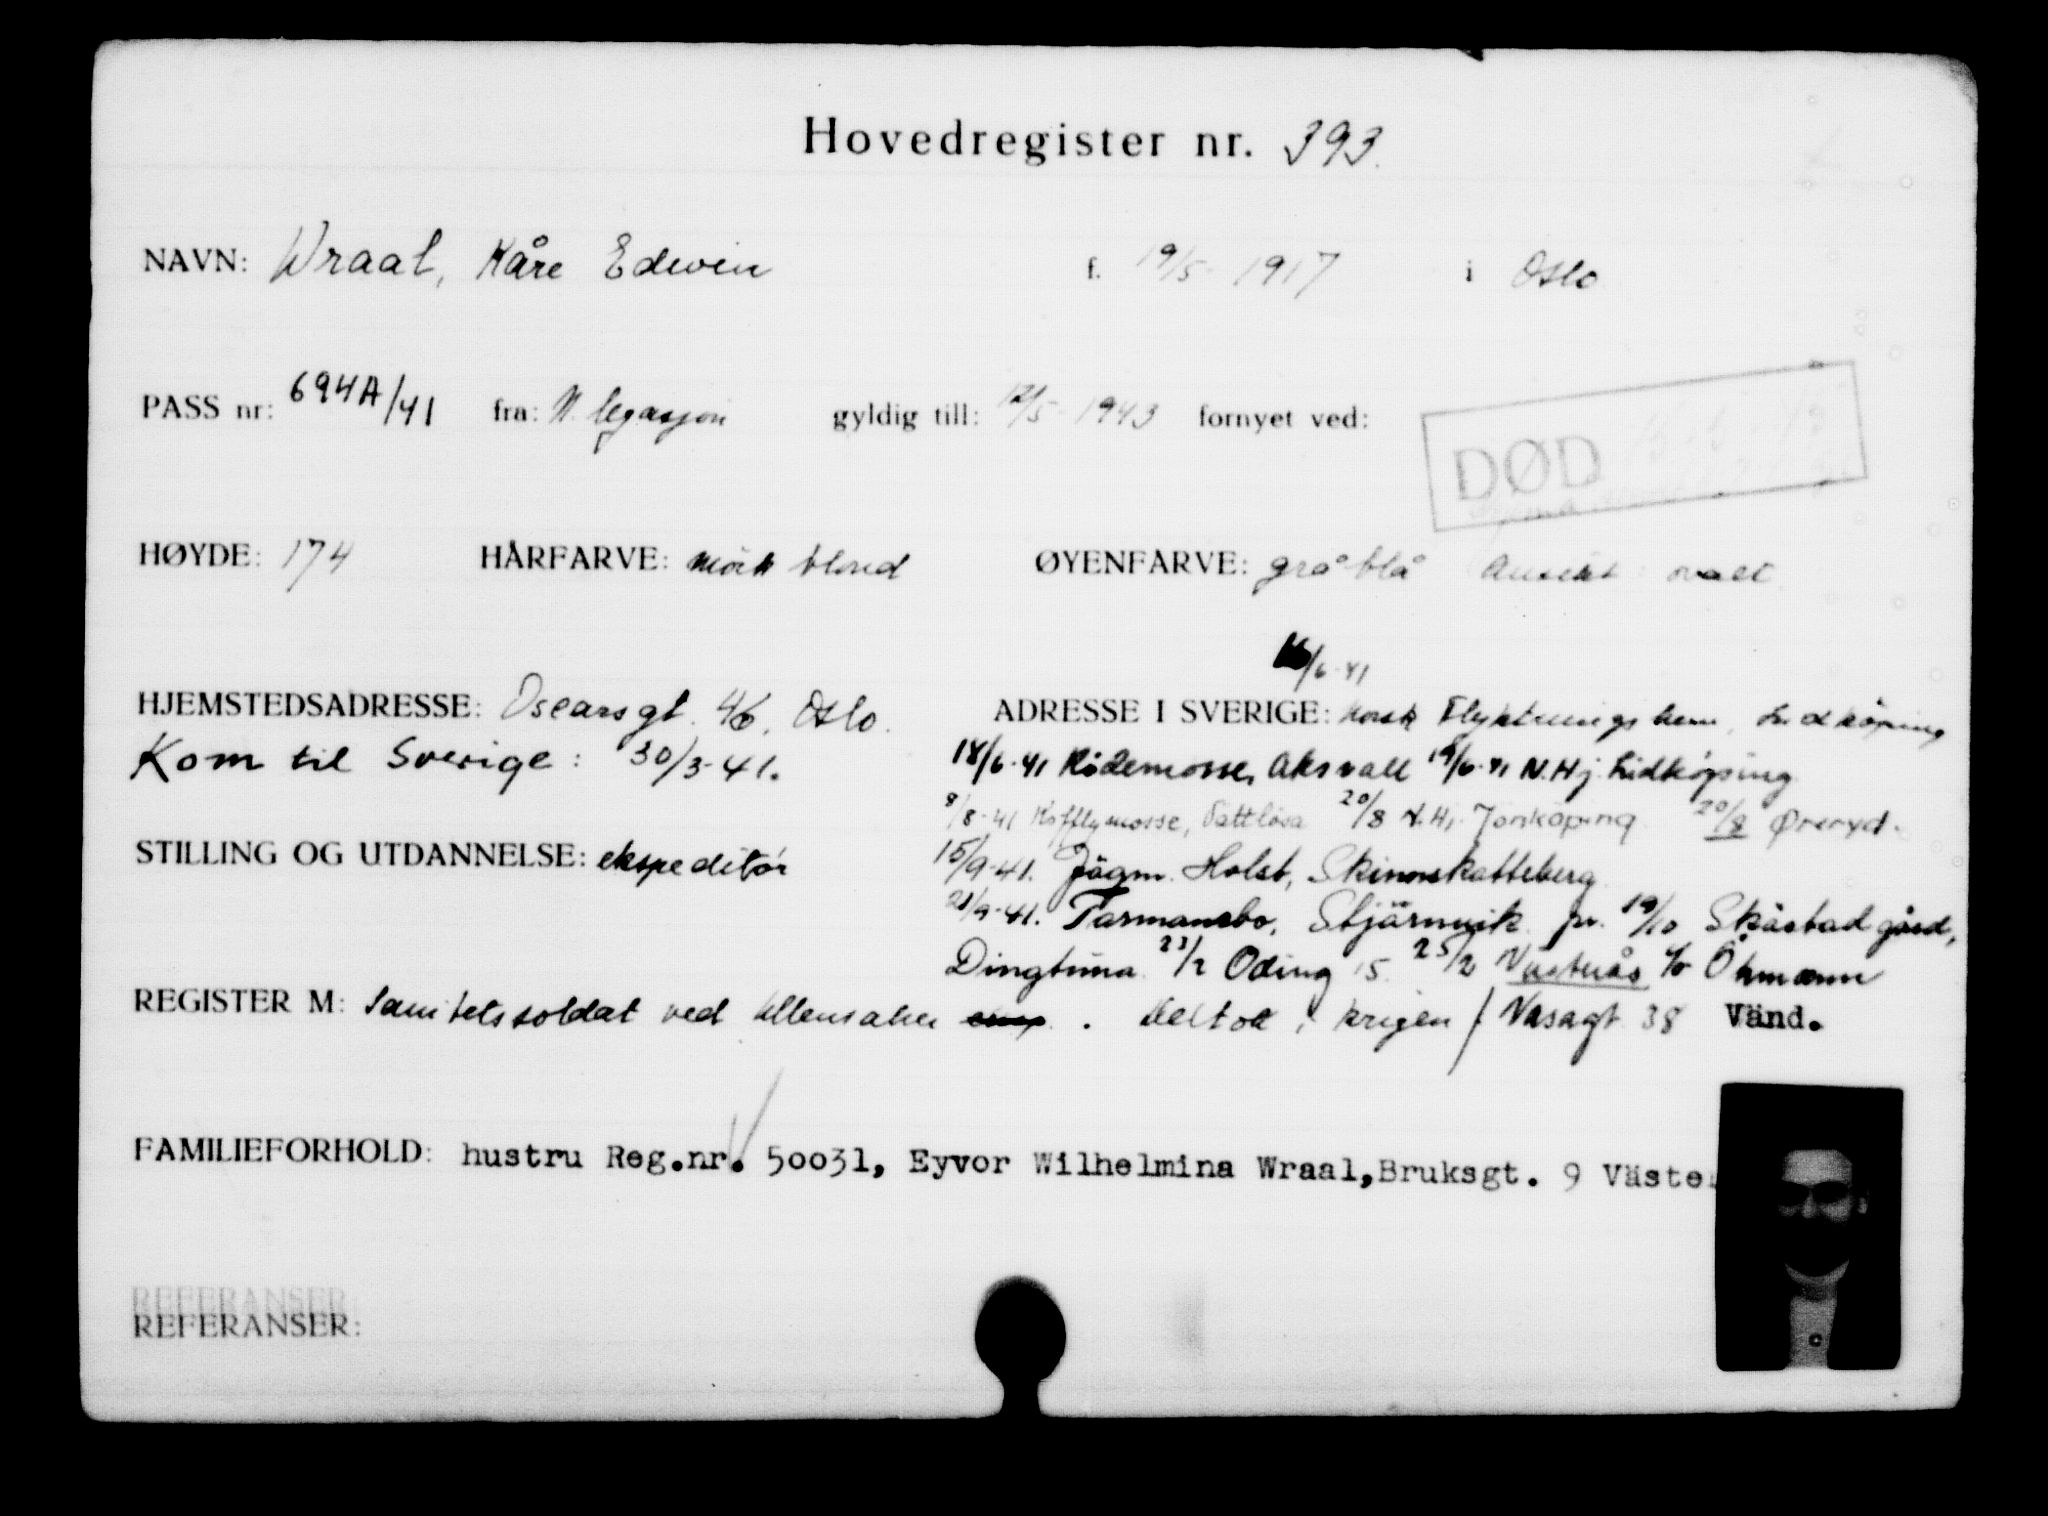 Hovedregister nr. 393.
NAVN: Wraal, Kåre Edwin f. 19/5 1917 i Oslo
PASS nr: 694A/41 fra: N. legasjon gyldig till: 12/5 1943 fornyet ved:
DØD
HØYDE: 174 HÅRFARVE: mörk blond ØYENFARVE: gråblå Ansikt: ovalt
/6-41
HJEMSTEDSADRESSE: Oscarsgt. 46, Oslo. ADRESSE I SVERIGE: Norsk Flyktningshem, Lidköping
Kom til Sverige: 30/3-41. 18/6-41 Rödemosse, Aksvall 19/6-41 N.Hj. Lidköping
8/8-41 Kofflymosse, 20/8 N.Hj. Jönköping 20/8 Øreryd.
STILLING OG UTDANNELSE: ekspeditör 15/9-41. Jägm. Holst, Skinnskatteberg
21/9-41. Farmansbo, Stjärnvik pr. 19/10 Skästad gård,
Dingtuna 23/2 Oding 15 25/2 Västerås c/o Öhmann
REGISTER M: Sanitetssoldat ved Ullensaker . Deltok i krigen / Vasagt 38 Vänd.
FAMILIEFORHOLD: hustru Reg.nr. 50031, Eyvor Wilhelmina Wraal, Bruksgt. 9 Väste
REFERANSER:
REFERANSER: